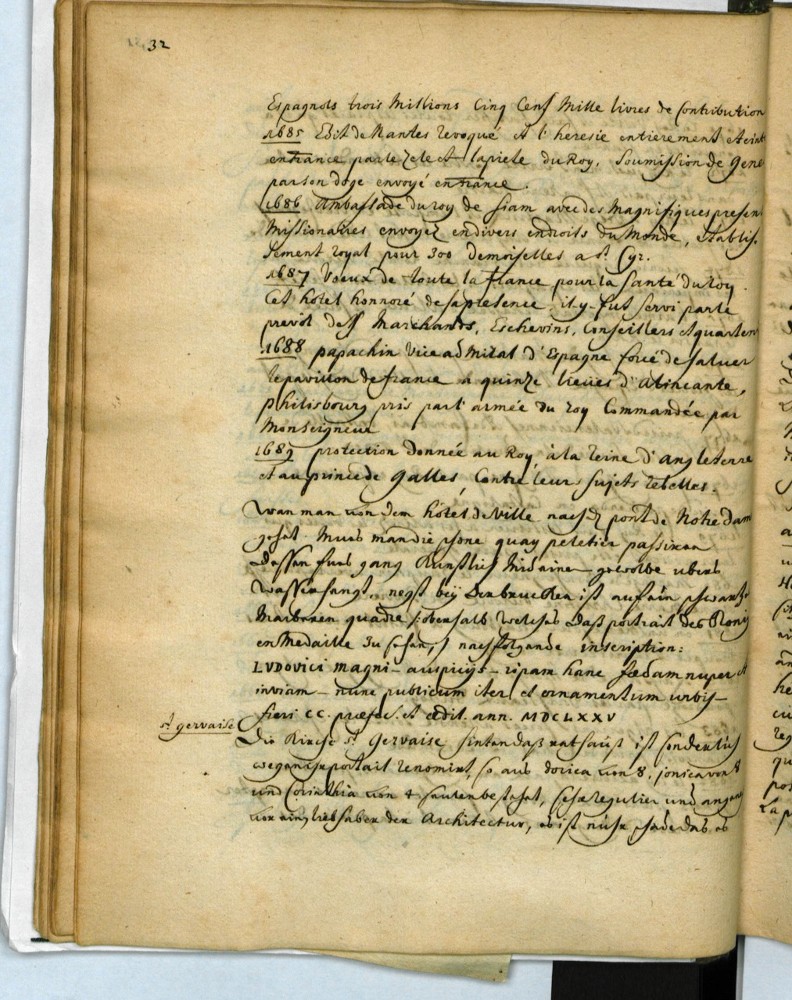 32
Espagnols trois Millions Cinq Cens Mille livres de Contribution
1685 Edit de Nantes revoqué et l'heresie entierement eteint
en France par le Zele et la pieté du Roy. Soumission de Gene
par son doge envoyé en France.
1686 Ambassade du roy de Siam avec des Magnifiques presen
Missionaires envoyez en divers endroits du Monde, Etablis
sement royal pour 300 demoiselles a St. Cyr.
1687 Voeux de toute la France pour la Santé du Roy.
Cet hôtel honnoré de sa presence il y fut servi par le
prevôt des Marchands, Eschevins, Conseillers et quarten
1688 papachin vice admiral d'Espagne forcé de saluer
le pavillon de france a quinze lieues d'Alincante,
Philisbourg pris par l'armée du roy Commandée par
Monseigneur
1689 protection donnée au Roy, à la reine d'angleterre
et au prince de Galles Contre leurs sujets rebelles.
Wan man von dem hôtel de Ville nach pont de Notre dam
gehet. Mus man die quay peletier passiren
dessen gang Künstlich mit einem gewölbe übers
Wasser hangt. negst beÿ der brucken ist auf ein schwartz
Marboren quadre /: oberhalb welches das portrait des König
en Medaille zu sehen :/ nachfolgende inscription:
LVDOVICI magni – auspicijs – ripam hanc foedam nuper et
inviam – nunc publicum iter et ornamentum urbis –
fieri CC. praefec. et aedil. ann. MDCLXXV
St gervaise
Die Kirche St. Gervaise hinter das rathauß ist sonderlich
wegen ihr portail renomirt, so aus dorica von 8. jonica von 8
und Corinthia von 4 saulen bestehet, sehr regulier und angen
von ein liebhaber der Architectur, es ist nuhr schade das es